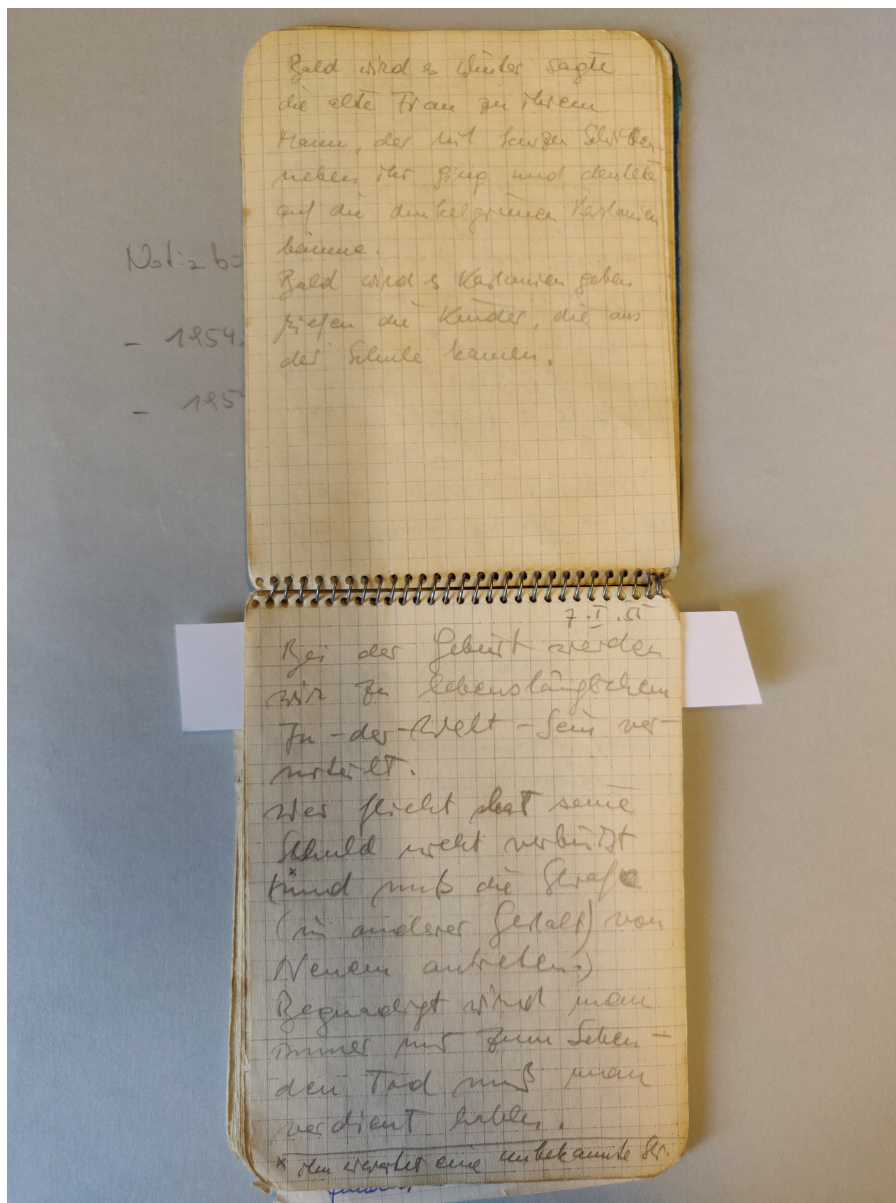 Bald wird es Winter sagte
die alte Frau zu ihrem
Mann, der mit kurzen Schritten
neben ihr ging und deutete
auf die dunkelgrünen Kastanien
bäume.
Bald wird es Kastanien geben
riefen die Kinder, die aus
der Schule kamen.
Notizb
- 1954
- 195
7.I.55
Bei der Geburt werden
wir zu lebenslänglichem
In-der-Welt-Sein ver-
urteilt.
Wer flieht hat seine
Schuld nicht verbüßt
(x und muß die Strafe
(in anderer Gestalt) von
Neuem antreten.)
Begnadigt wird man
immer nur zum Leben -
den Tod muß man
verdient haben.
x ihn erwartet eine unbekannte Str.